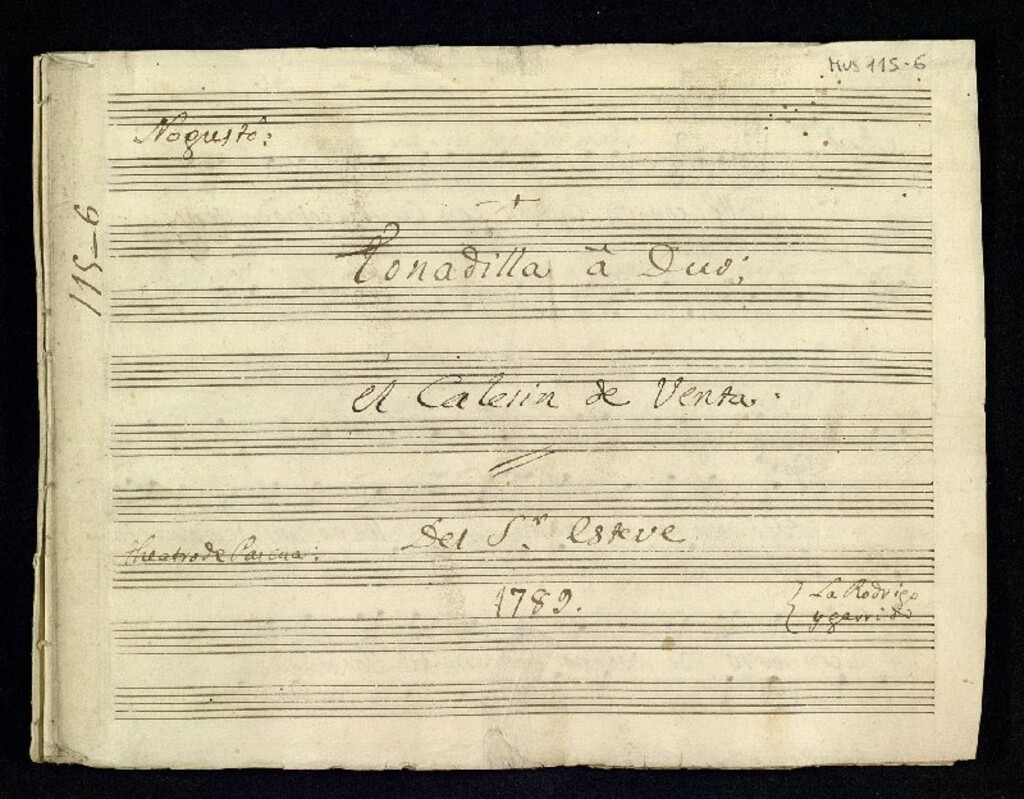 Mus 115-6
No gustó:
115-6
Tonadilla â Duo;
el Calesin de Venta.
Del S.r Esteve
theatro de
1789.
La Rodrigo
y garrido